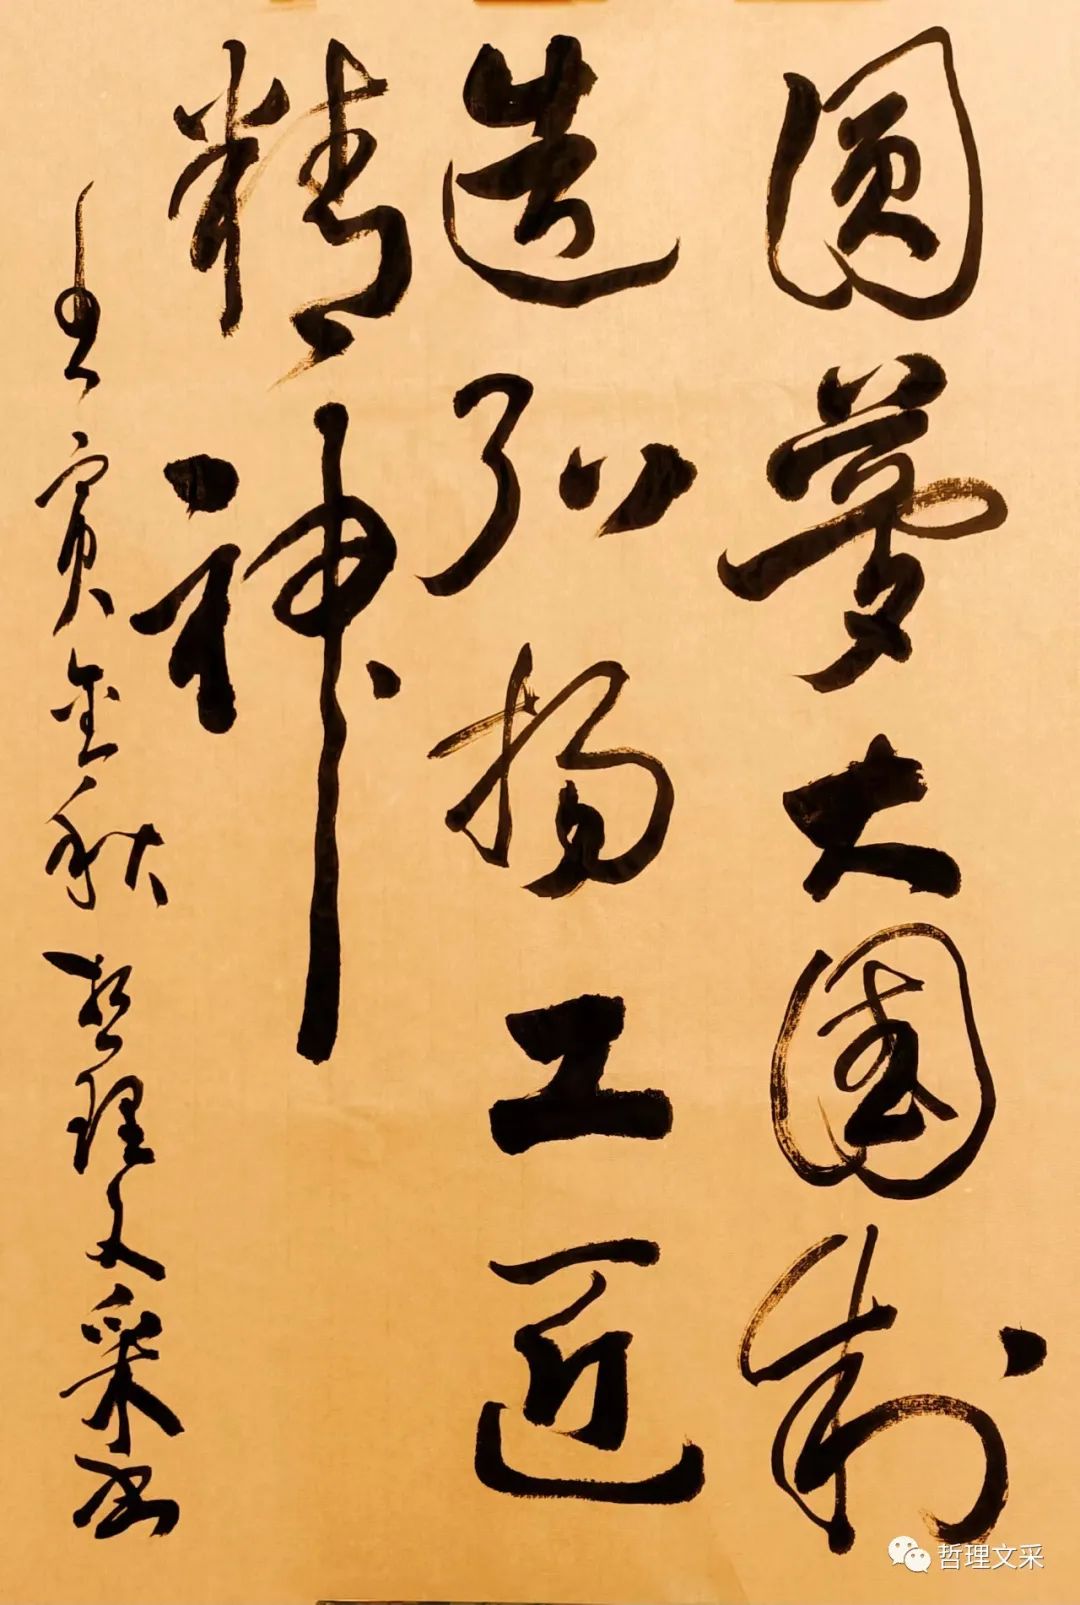 圆梦大国制
造弘扬工匠
精神
壬寅金秋哲理文采书
哲理文采